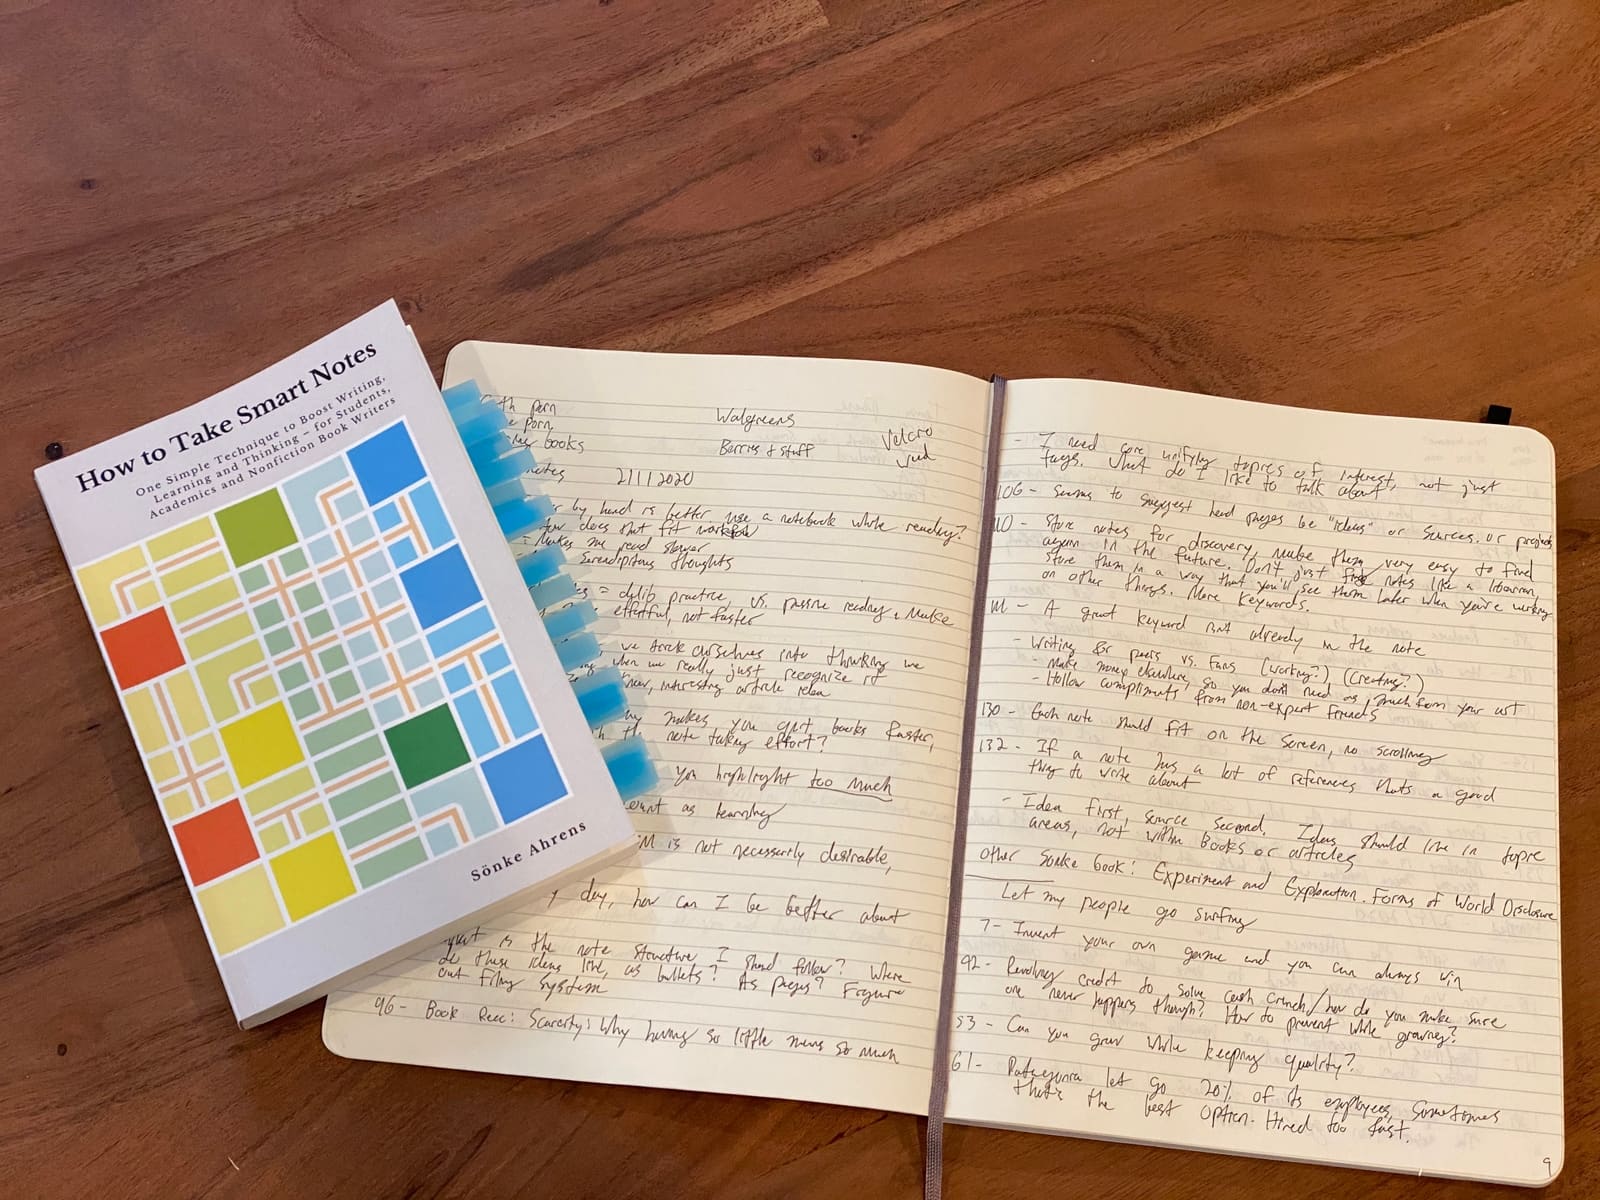 How to Take Smart Notes
One Simple Technique to Boost Writing,
Learning and Thinking – for Students,
Academics and Nonfiction Book Writers
Sönke Ahrens
th porn
e porn,
books
Walgreens
Berries & stuff
Velcro
notes 2/1/2020
by hand is better use a notebook while reading?
How does that fit workflow
- Makes me read slower
- Serendipitous thoughts
= delib practice, vs. passive reading, make
effortful, not faster
we trick ourselves into thinking we
when we really just recognize it
new, interesting article idea
makes you quit books faster,
th the note taking effort?
you highlight too much
count as learning
is not necessarily desirable,
day, how can I be better about
What is the note structure I should follow? Where
do these ideas live, as bullets? As pages? Figure
out filing system
96 - Book Rec: Scarcity: Why having so little means so much
- I need core unifying topics of interest, not just
tags. What do I like to talk about
106 - Seems to suggest head pages be "ideas" or sources. or projects
110 - Store notes for discovery, make them very easy to find
again in the future. Don't just notes like a librarian,
store them in a way that you'll see them later when you're working
on other things. More keywords.
111 - A great keyword isn't already in the note
- Writing for peers vs. fans (working?) (creating?)
- Make money elsewhere, so you don't need as much from your art
- Hollow compliments from non-expert friends
130 - Each note should fit on the screen, no scrolling
132 - If a note has a lot of references that's a good
thing to write about
- Idea first, source second. Ideas should live in topic
areas, not within books or articles
Other Sonke book: Experiment and Exploration. Forms of World Disclosure
Let my people go surfing
7 - Invent your own game and you can always win
92 - Revolving credit to solve cash crunch / how do you make sure
one never happens though? How to prevent while growing?
53 - Can you grow while keeping quality?
61 - Patagonia let go 20% of its employees, Sometimes
that's the best option. Hired too fast.
9